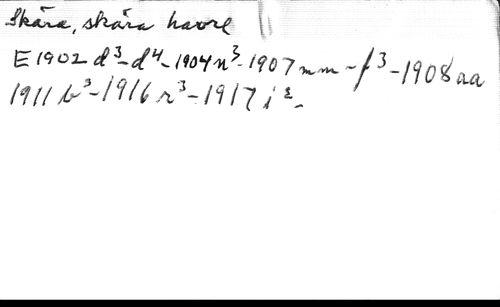 Skära, skära havre
E 1902 d³-d⁴-1904 n³-1907 mm-f³-1908 aa
1911 b³-1916 r³-1917 i²-